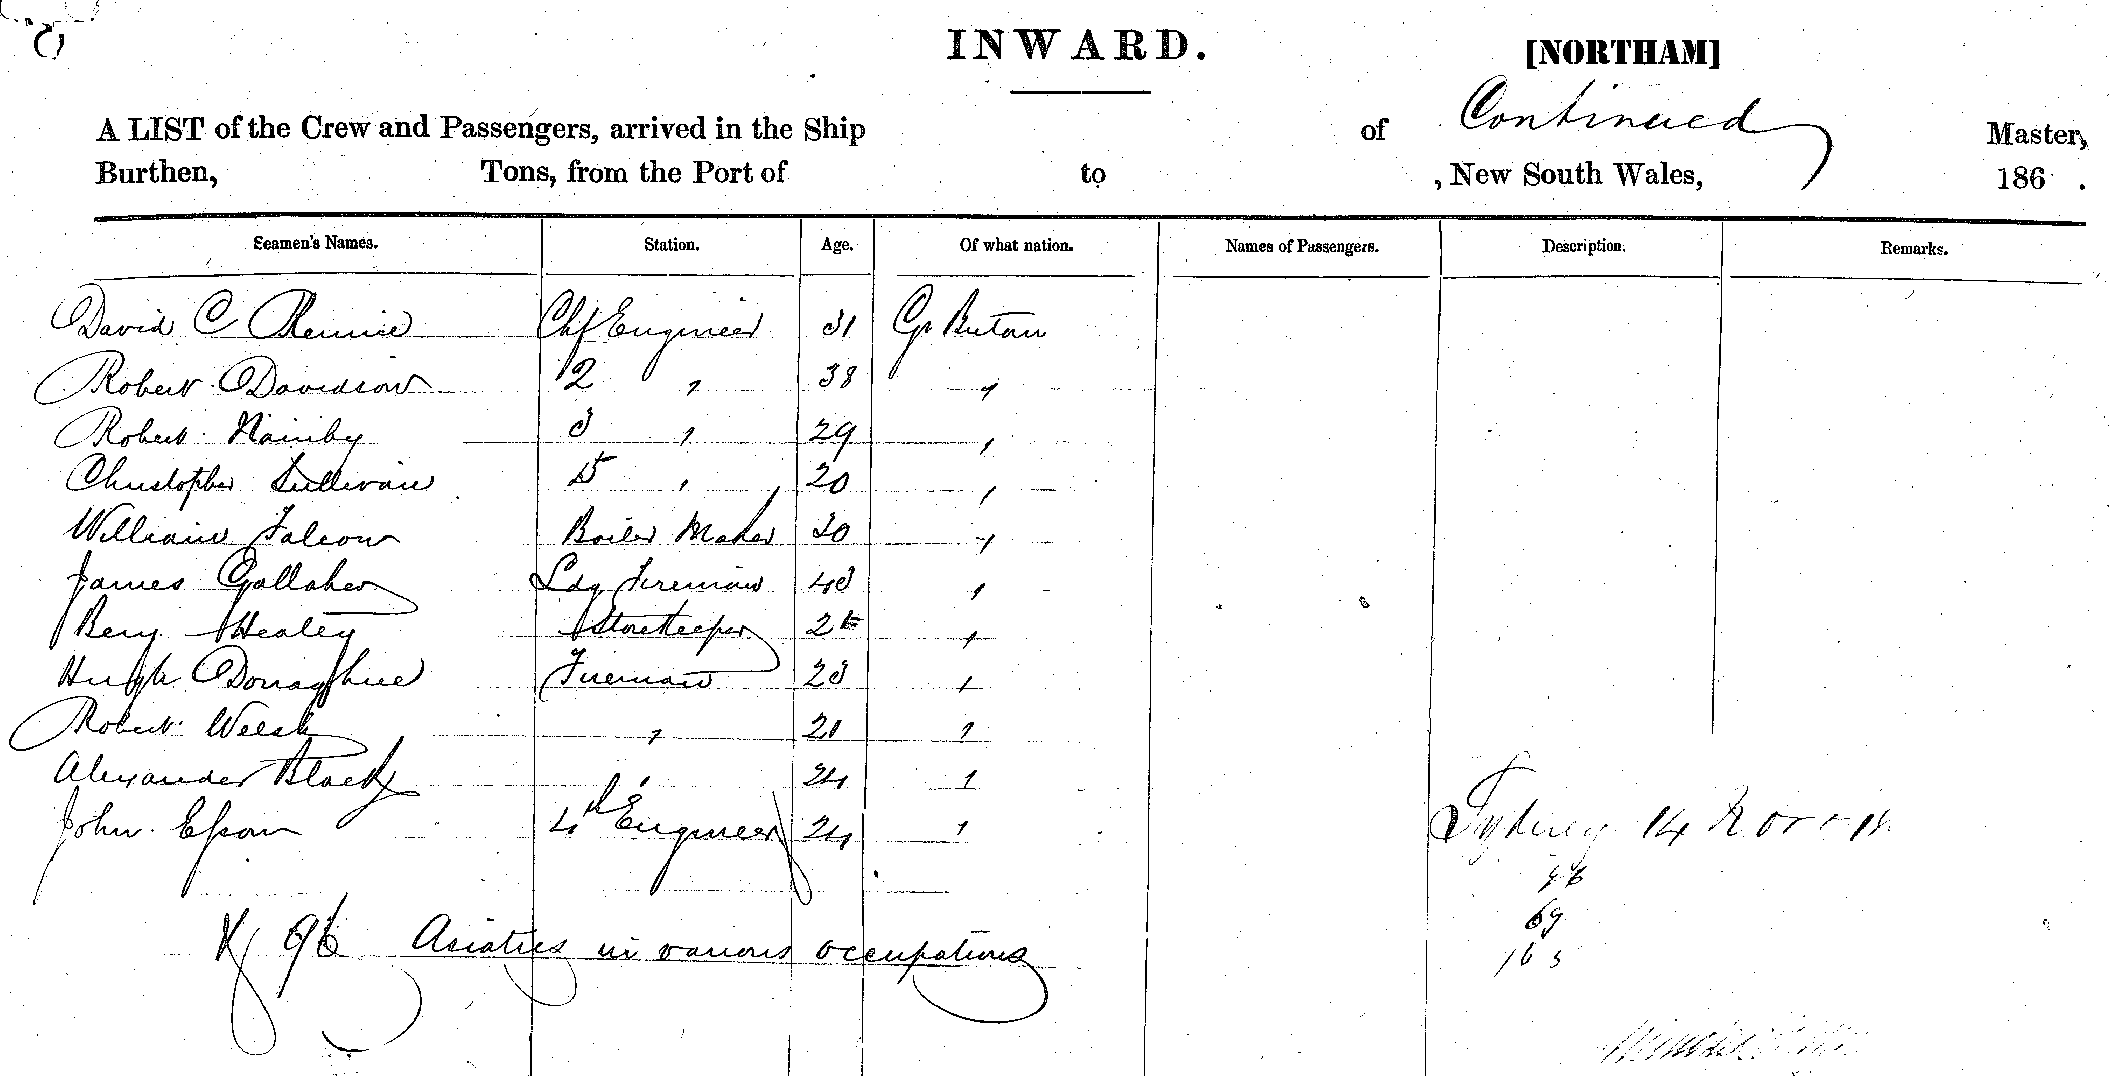 INWARD.
[NORTHAM]
A LIST of the Crew and Passengers, arrived in the Ship of Continued Master,
Burthen, Tons, from the Port of to , New South Wales, 186 .
Seamen's Names. Station. Age. Of what nation. Names of Passengers. Description. Remarks.
David C Rennie Chf Engineer 31 Gr Britain
Robert Davidson 2 " 38 "
Robert 3 " 29 "
Christopher Sullivan 5 " 20 "
William Falcon Boiler Maker 30 "
James Gallaher Ldg Fireman 43 "
Benj Healey Storekeeper "
Hugh Donaghue Fireman 23 "
Robert Welsh " 21 "
Alexander Black " 24 "
John 4th Engineer 24 "
Sydney 14
69
163
96 Asiatics in various occupations